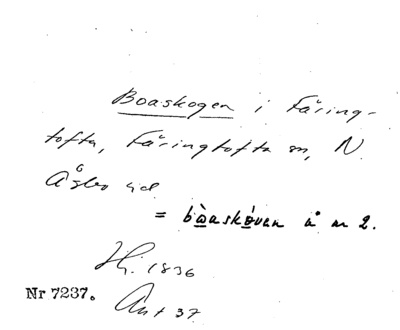 Boaskogen i Färing-
tofta, Färingtofta sn, N.
Åsbo hd
= bòaskóven å m 2.
Hj. 1836
Nr 7237. Ant 37